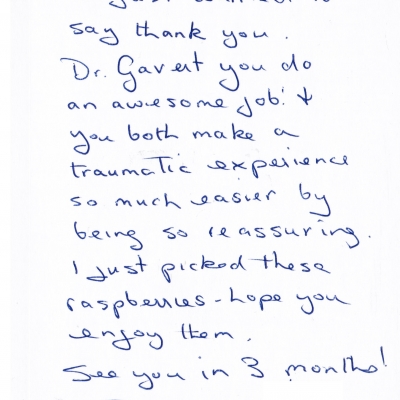 say thank you.
Dr. Gavert you do
an awesome job! &
you both make a
traumatic experience
so much easier by
being so reassuring.
I just picked these
raspberries - hope you
enjoy them.
See you in 3 months!